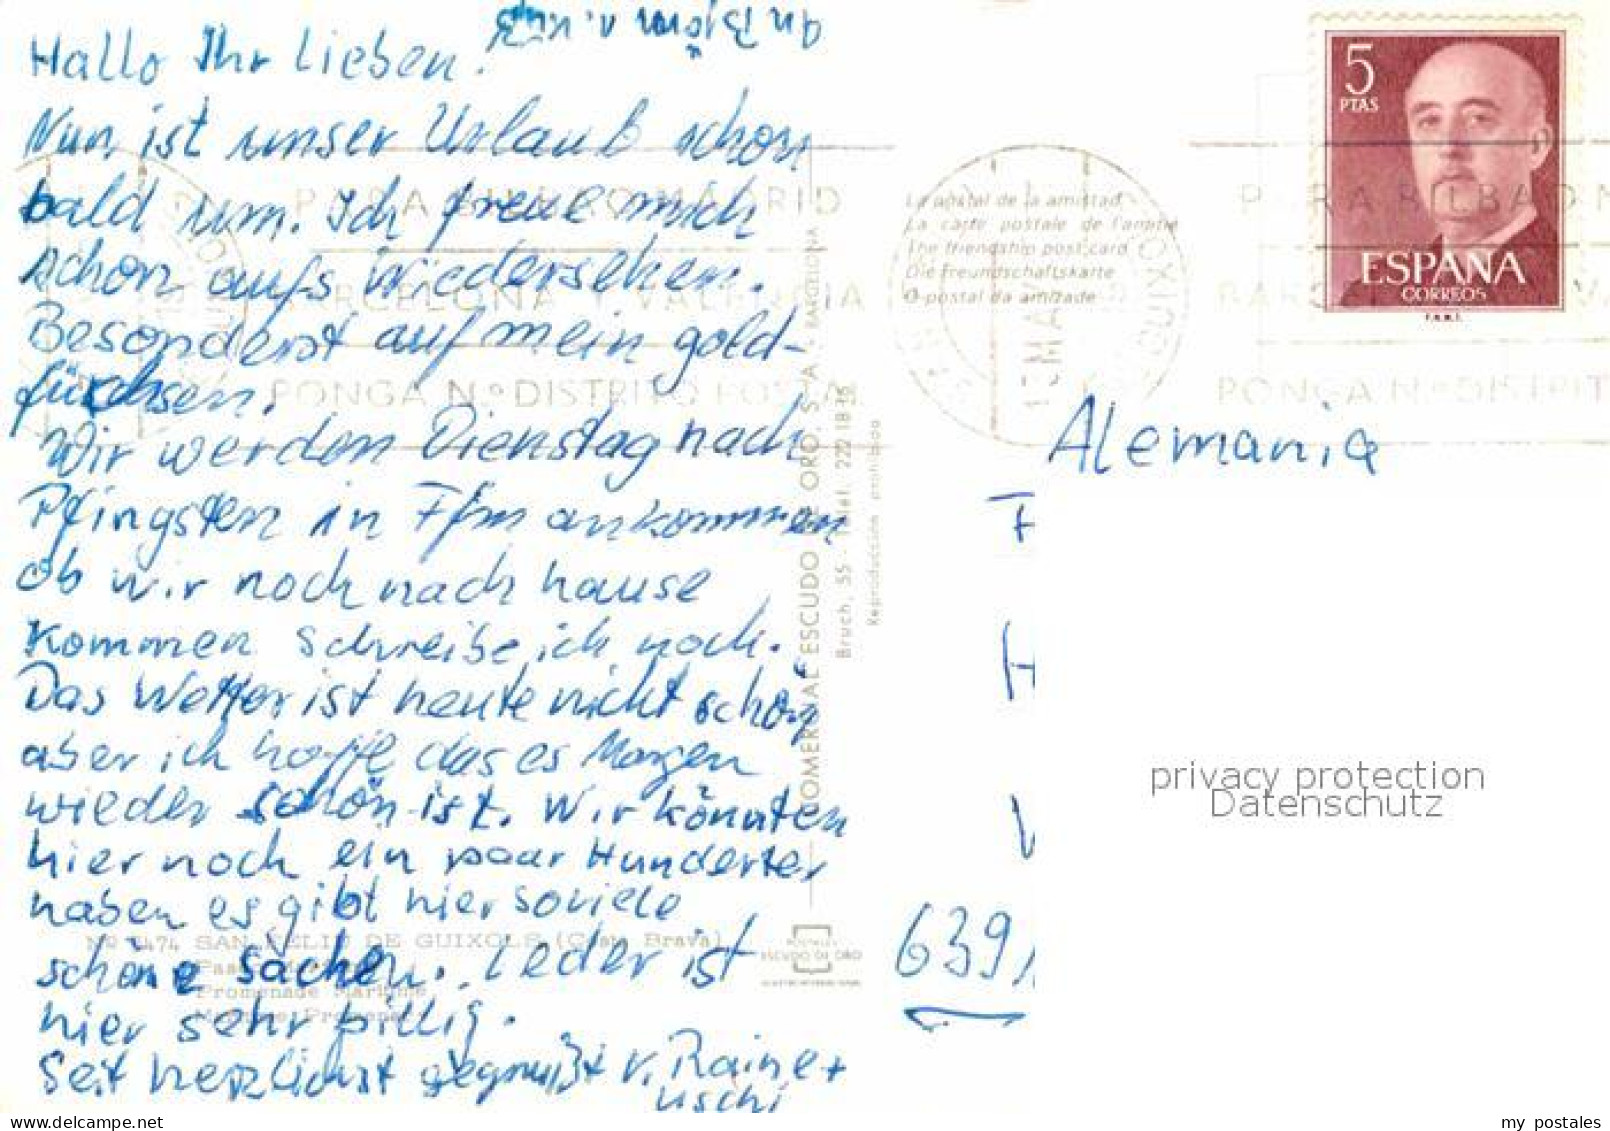 Hallo Ihr Lieben.
Nun ist unser Urlaub schon
bald um. Ich freue mich
schon aufs Wiedersehen.
Besonderst auf mein gold-
füchsen.
Wir werden Dienstag nach
Pfingsten in Ffm ankommen
ob wir noch nach hause
kommen schreibe ich noch.
Das Wetter ist heute nicht schön
aber ich hoffe das es Morgen
wieder schön ist. Wir könnten
hier noch ein paar Hunderter
haben es gibt hier soviele
schöne sachen. Leder ist
hier sehr billig.
Seit herzlichst gegrüßt v. Raine +
uschi
An Björn v. Kuß
Nº 474 SAN FELIU DE GUIXOLS (Costa Brava)
Promenade Maritime
COMERCIAL ESCUDO DE ORO, S. A. - BARCELONA
Bruch, 55 - Telef. 222 18 15
Reproducción prohibida
POSTALES
ESCUDO DE ORO
La postal de la amistad
La carte postale de l'amitié
The friendship post card
Die Freundschaftskarte
O postal da amizade
PARA BILBAO MADRID
BARCELONA Y VALENCIA
PONGA N.º DISTRITO POSTAL
13 MAY
PARA BILBAO M
BARC
PONGA N.º DISTRIT
5
PTAS
ESPAÑA
CORREOS
F.N.M.T.
Alemania
F
H
639
privacy protection
Datenschutz
my postales